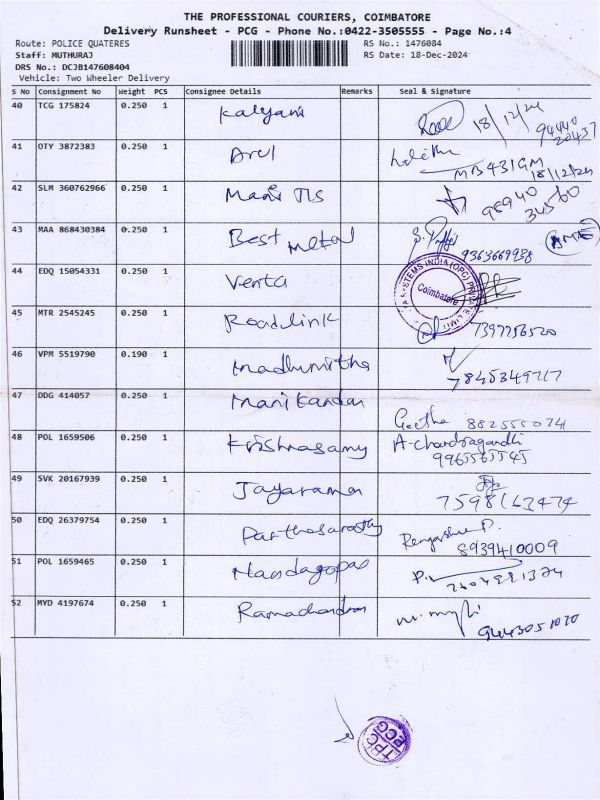 THE PROFESSIONAL COURIERS, COIMBATORE
Delivery Runsheet - PCG - Phone No.:0422-3505555 - Page No.:4
Route: POLICE QUATERES
RS No.: 1476084
Staff: MUTHURAJ
RS Date: 18-Dec-2024
DRS No.: DCJB147608404
Vehicle: Two Wheeler Delivery
S No Consignment No Weight PCS Consignee Details Remarks Seal & Signature
40 TCG 175824 0.250 1 Kalyani 18/12/24
94440
20437
41 OTY 3872383 0.250 1 Arul Lalitha
18/12/24
42 SLM 360762966 0.250 1 Mani TLS 98940
34560
43 MAA 868430384 0.250 1 Best Metal 9363669938
44 EDQ 15054331 0.250 1 Venta
SYSTEMS INDIA (OPC) PRIVATE LIMITED
Coimbatore
45 MTR 2545245 0.250 1 Roadlink 7397756520
46 VPM 5519790 0.190 1 Madhumitha
47 DDG 414057 0.250 1 Manikandan Geetha
48 POL 1659506 0.250 1 Krishnasamy A-Chandragandhi
9965565545
49 SVK 20167939 0.250 1 Jayaraman
7598163474
50 EDQ 26379754 0.250 1 Parthasarathy
8939410009
51 POL 1659465 0.250 1 Nandagopal
52 MYD 4197674 0.250 1 Ramachandran
TPC
PCG